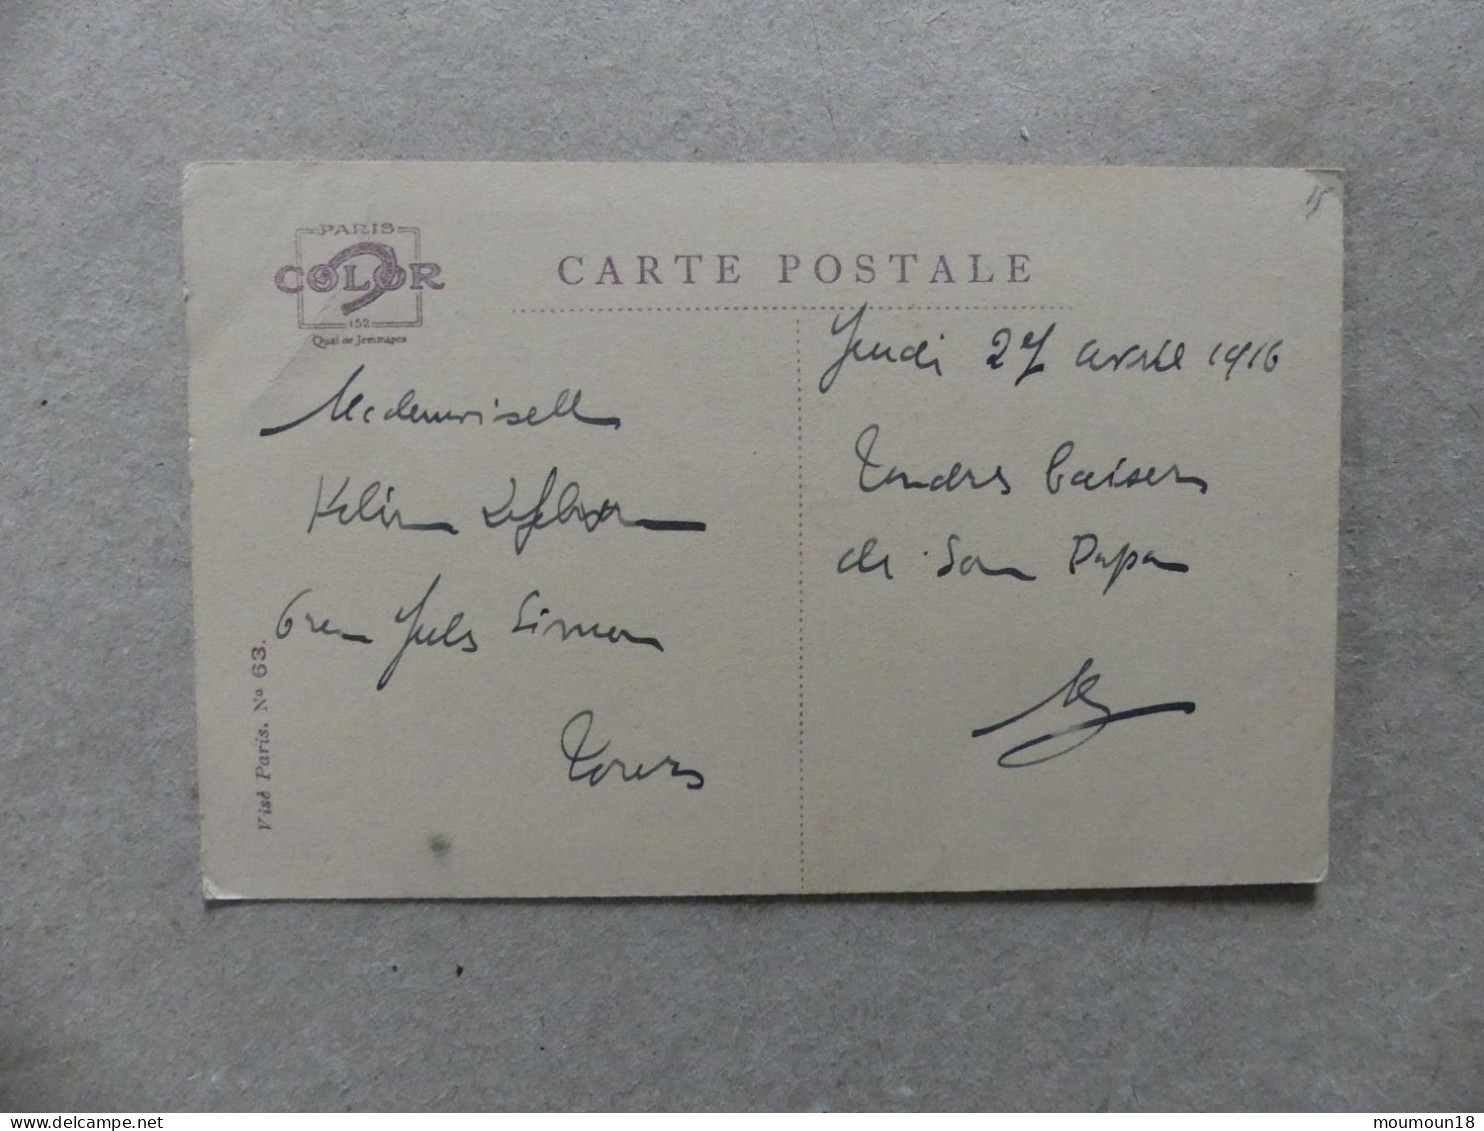 PARIS
COLOR
152
Quai de Jemmapes
CARTE POSTALE
15
Jeudi 27 avril 1916
Mademoiselle
Tendres baisers
de son Papa
6 rue Jules Simon
Tours
Visé Paris. No 63.
moumoun18